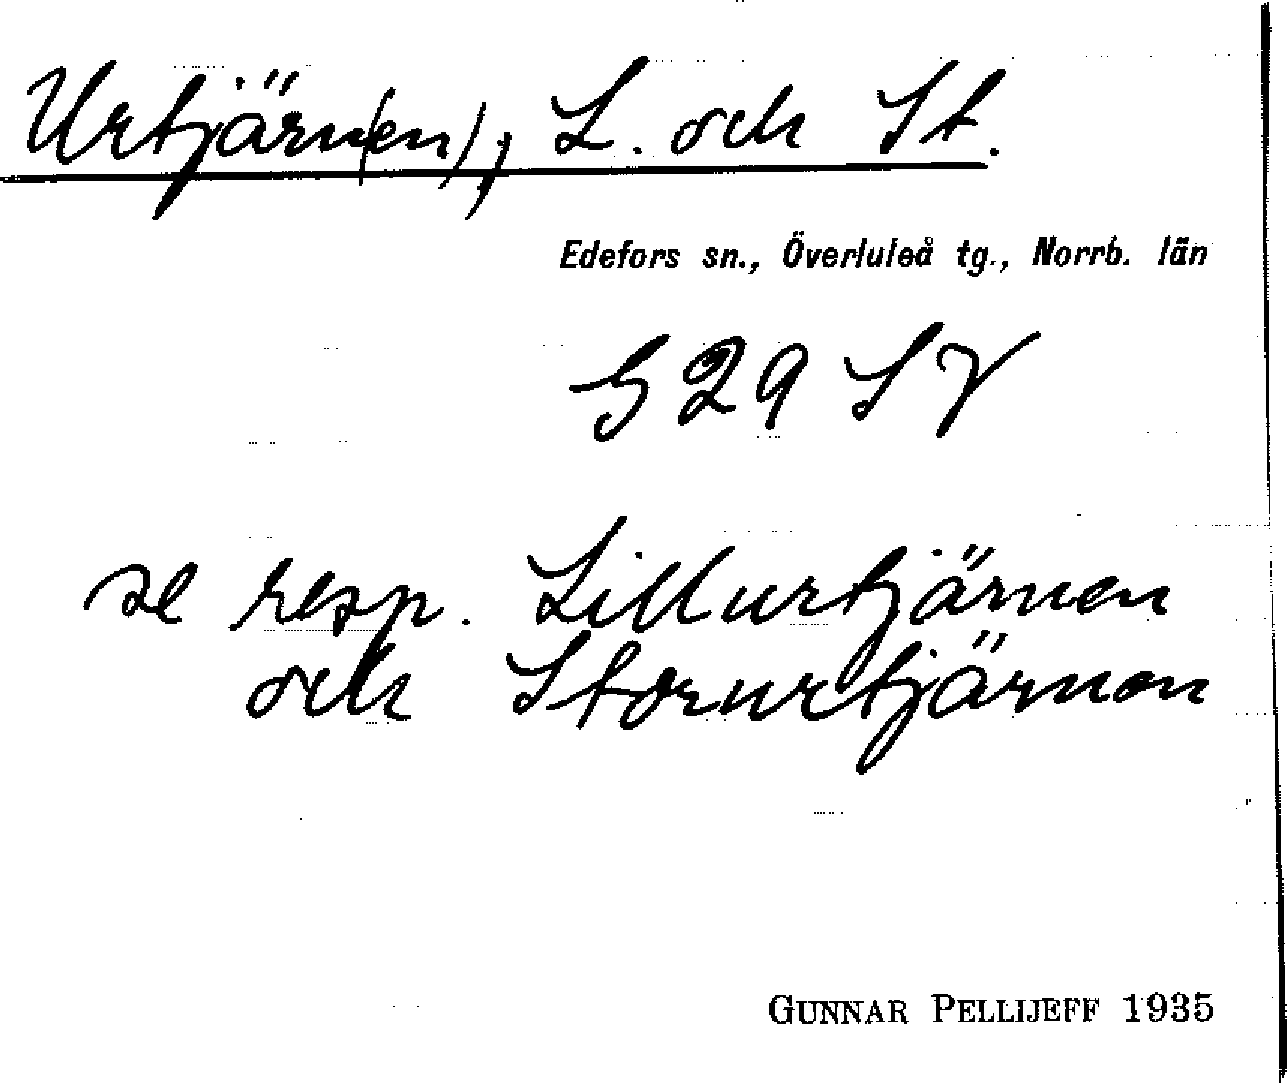 Urtjärn(en), L. och St.
Edefors sn., Överluleå tg., Norrb. län
G 29 SV
se resp. Lillurtjärnen
och Storurtjärnen
GUNNAR PELLIJEFF 1935